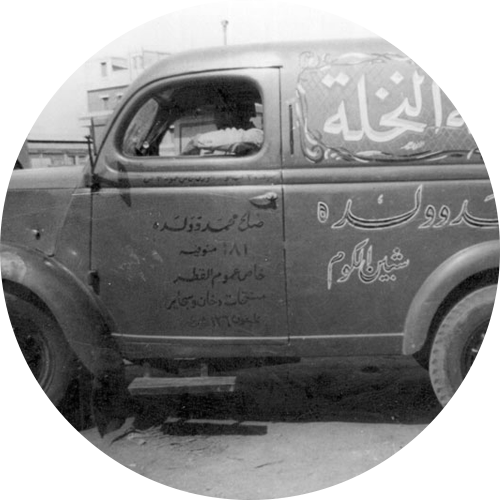 ة النخلة
مد وولده
شبين الكوم
صالح محمد وولده
١٨١ منوفيه
خاص عموم القطر
منتجات دخان وسجاير